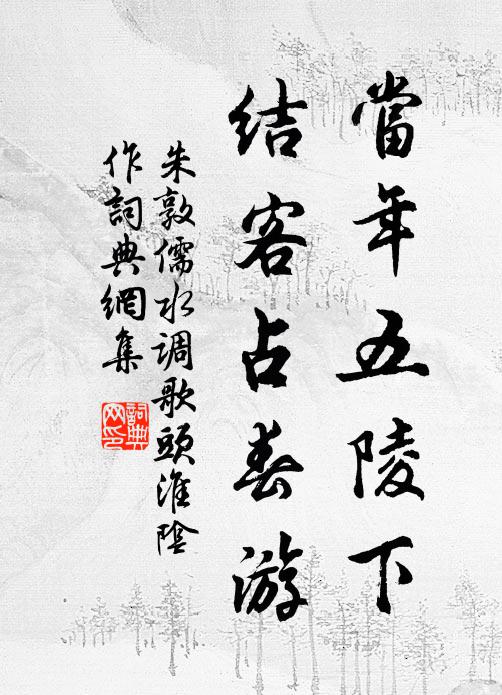 當年五陵下
結客占春游
朱敦儒水调歌頭淮陰
作詞典網集
詞典网印